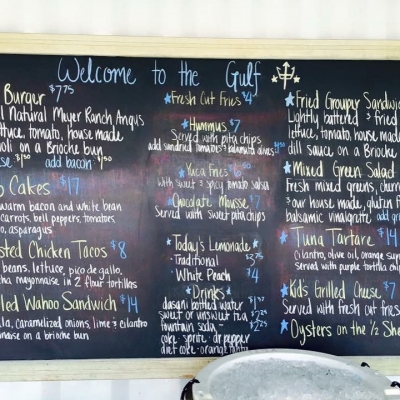 Welcome to the Gulf
Burger $7.75
l Natural Meyer Ranch Angus
lettuce, tomato, house made
oli on a Brioche buy
add bacon $1.50
Cakes $17
warm bacon and white bean
carrots, bell peppers, tomatoes
asparagus
sted Chicken Tacos $8
beans, lettuce, pico de gallo,
cha mayonnaise in 2 flour tortillas
led Wahoo Sandwich $14
la, caramelized onions, lime & cilantro
naise on a brioche bun
Fresh Cut Fries $4
Hummus $7
Served with pita chips
add sundried tomatoes & kalamata olives
Yuca Fries $6
with sweet & spicy tomato salsa
Chocolate Mousse $7
Served with sweet pita chips
Today's Lemonade
- Traditional $3.75
- White Peach $4
Drinks
dasani bottled water
sweet or unsweet tea $2.25
fountain soda - $2.25
coke sprite dr pepper
diet coke orange fanta
Fried Grouper Sandwic
Lightly battered & fried
lettuce, tomato, house made
dill sauce on a Brioche
Mixed Green Salad
Fresh mixed greens, cherry
& our house made, gluten f
balsamic vinaigrette add gri
Tuna Tartare $14
Cilantro, olive oil, orange sup
served with purple tortilla chi
Kids Grilled Cheese $7
Served with fresh cut fries
Oysters on the 1/2 She